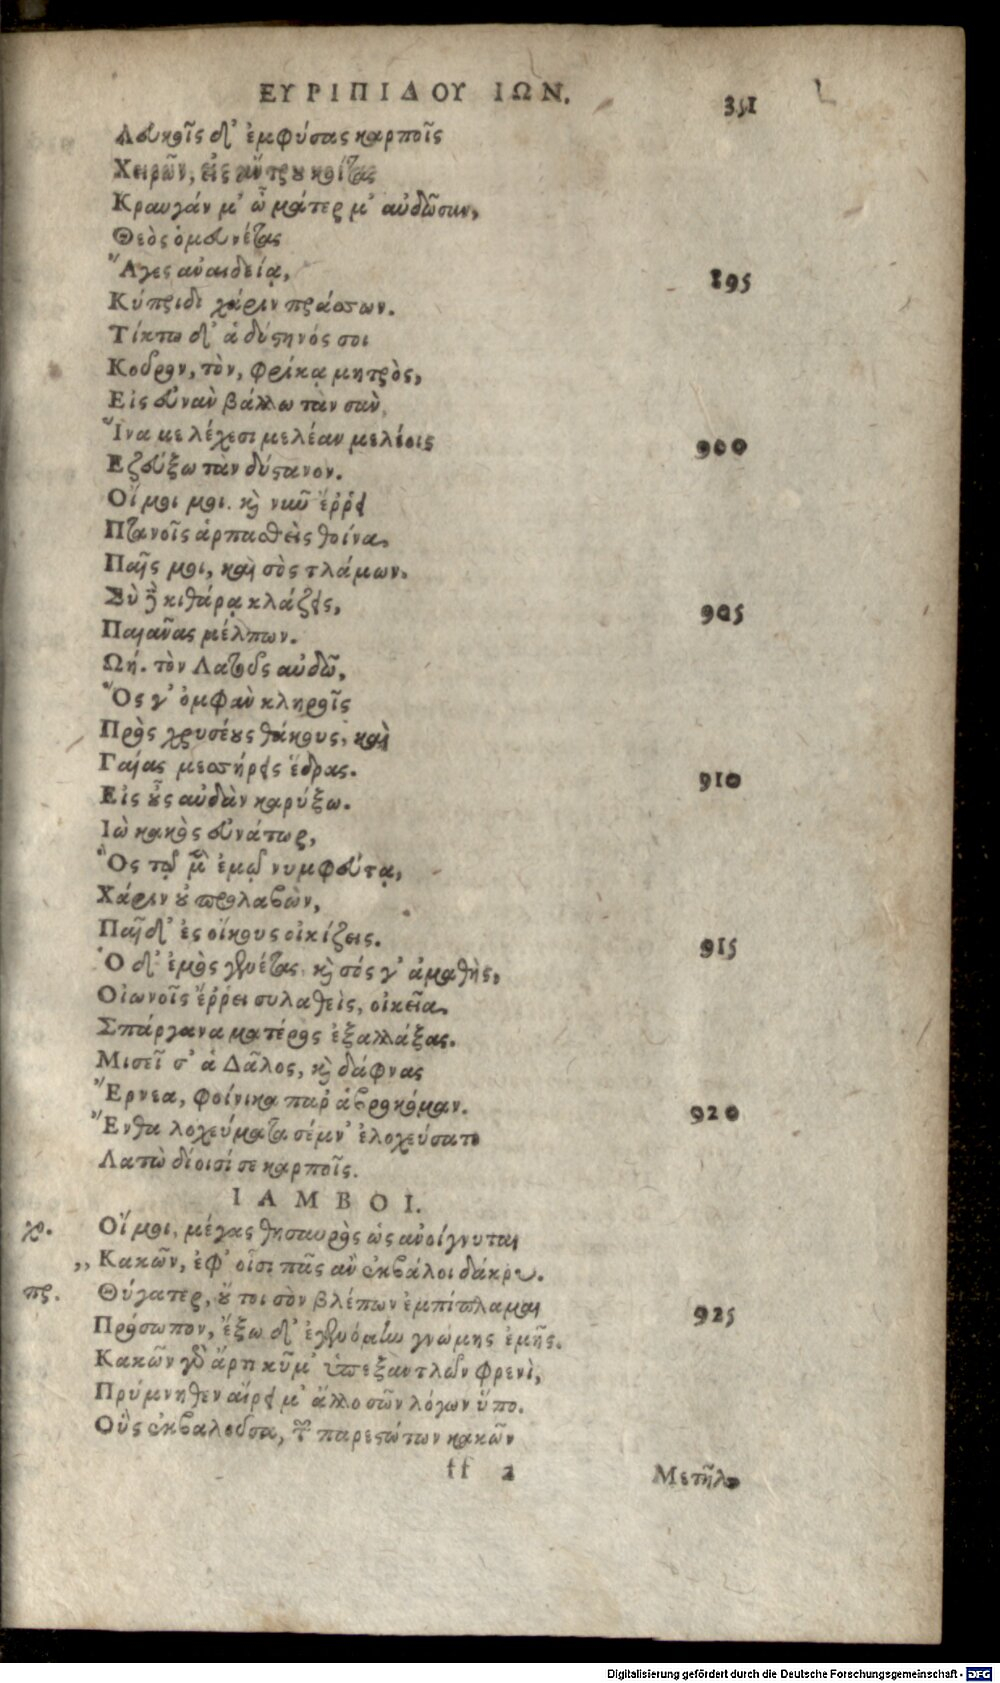 ΕΥΡΙΠΙΔΟΥ ΙΩΝ. 351
Λευκοῖς δ' ἐμφύσας καρποῖς
Χειρῶν, εἰς ἄντρου κοίτας
Κραυγάν μ' ὦ μάτερ μ' αὐδῶσαν,
Θεὸς ὁμευνέτας
Ἄγες ἀναιδείᾳ, 895
Κύπριδι χάριν πράσσων.
Τίκτω δ' ἁ δύστηνός σοι
Κοῦρον, τὸν, φρίκᾳ μητρὸς,
Εἰς εὐνὰν βάλλω τὰν σὰν
Ἵνα με λέχεσι μελέαν μελέοις 900
Εζεύξω τὰν δύστανον.
Οἴ μοι μοι. καὶ νῦν ἔῤῥει
Πτανοῖς ἁρπασθεὶς θοίνα,
Παῖς μοι, καὶ σὸς τλάμων.
Σὺ δὲ κιθάρᾳ κλάζεις, 905
Παιᾶνας μέλπων.
Ωή. τὸν Λατοῦς αὐδῶ,
Ὅς γ' ὀμφὰν κληροῖς
Πρὸς χρυσέους θάκους, καὶ
Γαίας μεσσήρεις ἕδρας. 910
Εἰς οὖς αὐδὰν καρύξω.
Ἰὼ κακὸς εὐνάτωρ,
Ὃς τῷ μὲν ἐμῷ νυμφεύτᾳ,
Χάριν οὐ προλαβὼν,
Παῖδ' ἐς οἴκους οἰκίζεις. 915
Ὁ δ' ἐμὸς γενέτας καὶ σός γ' ἀμαθὴς,
Οἰωνοῖς ἔῤῥει συλαθεὶς, οἰκεῖα,
Σπάργανα ματέρος ἐξαλλάξας.
Μισεῖ σ' ἁ Δᾶλος, καὶ δάφνας
Ἔρνεα, φοίνικα παρ' ἁβροκόμαν. 920
Ἔνθα λοχεύματα σέμν' ἐλοχεύσατο
Λατὼ δίοισί σε καρποῖς.
ΙΑΜΒΟΙ.
χο. Οἴ μοι, μέγας θησαυρὸς ὡς ἀνοίγνυται
,, Κακῶν, ἐφ' οἷσι πᾶς ἂν ἐκβάλοι δάκρυ.
πρ. Θύγατερ, οὔ τοι σὸν βλέπων ἐμπίπλαμαι 925
Πρόσωπον, ἔξω δ' ἐγενόμην γνώμης ἐμῆς.
Κακῶν γὰρ ἄρτι κῦμ' ὑπεξαντλῶν φρενὶ,
Πρύμνηθεν αἴρει μ' ἄλλο σῶν λόγων ὕπο.
Οὓς ἐκβαλοῦσα, τῶν παρεστώτων κακῶν
ff 2 Μετῆλ
Digitalisierung gefördert durch die Deutsche Forschungsgemeinschaft - DFG